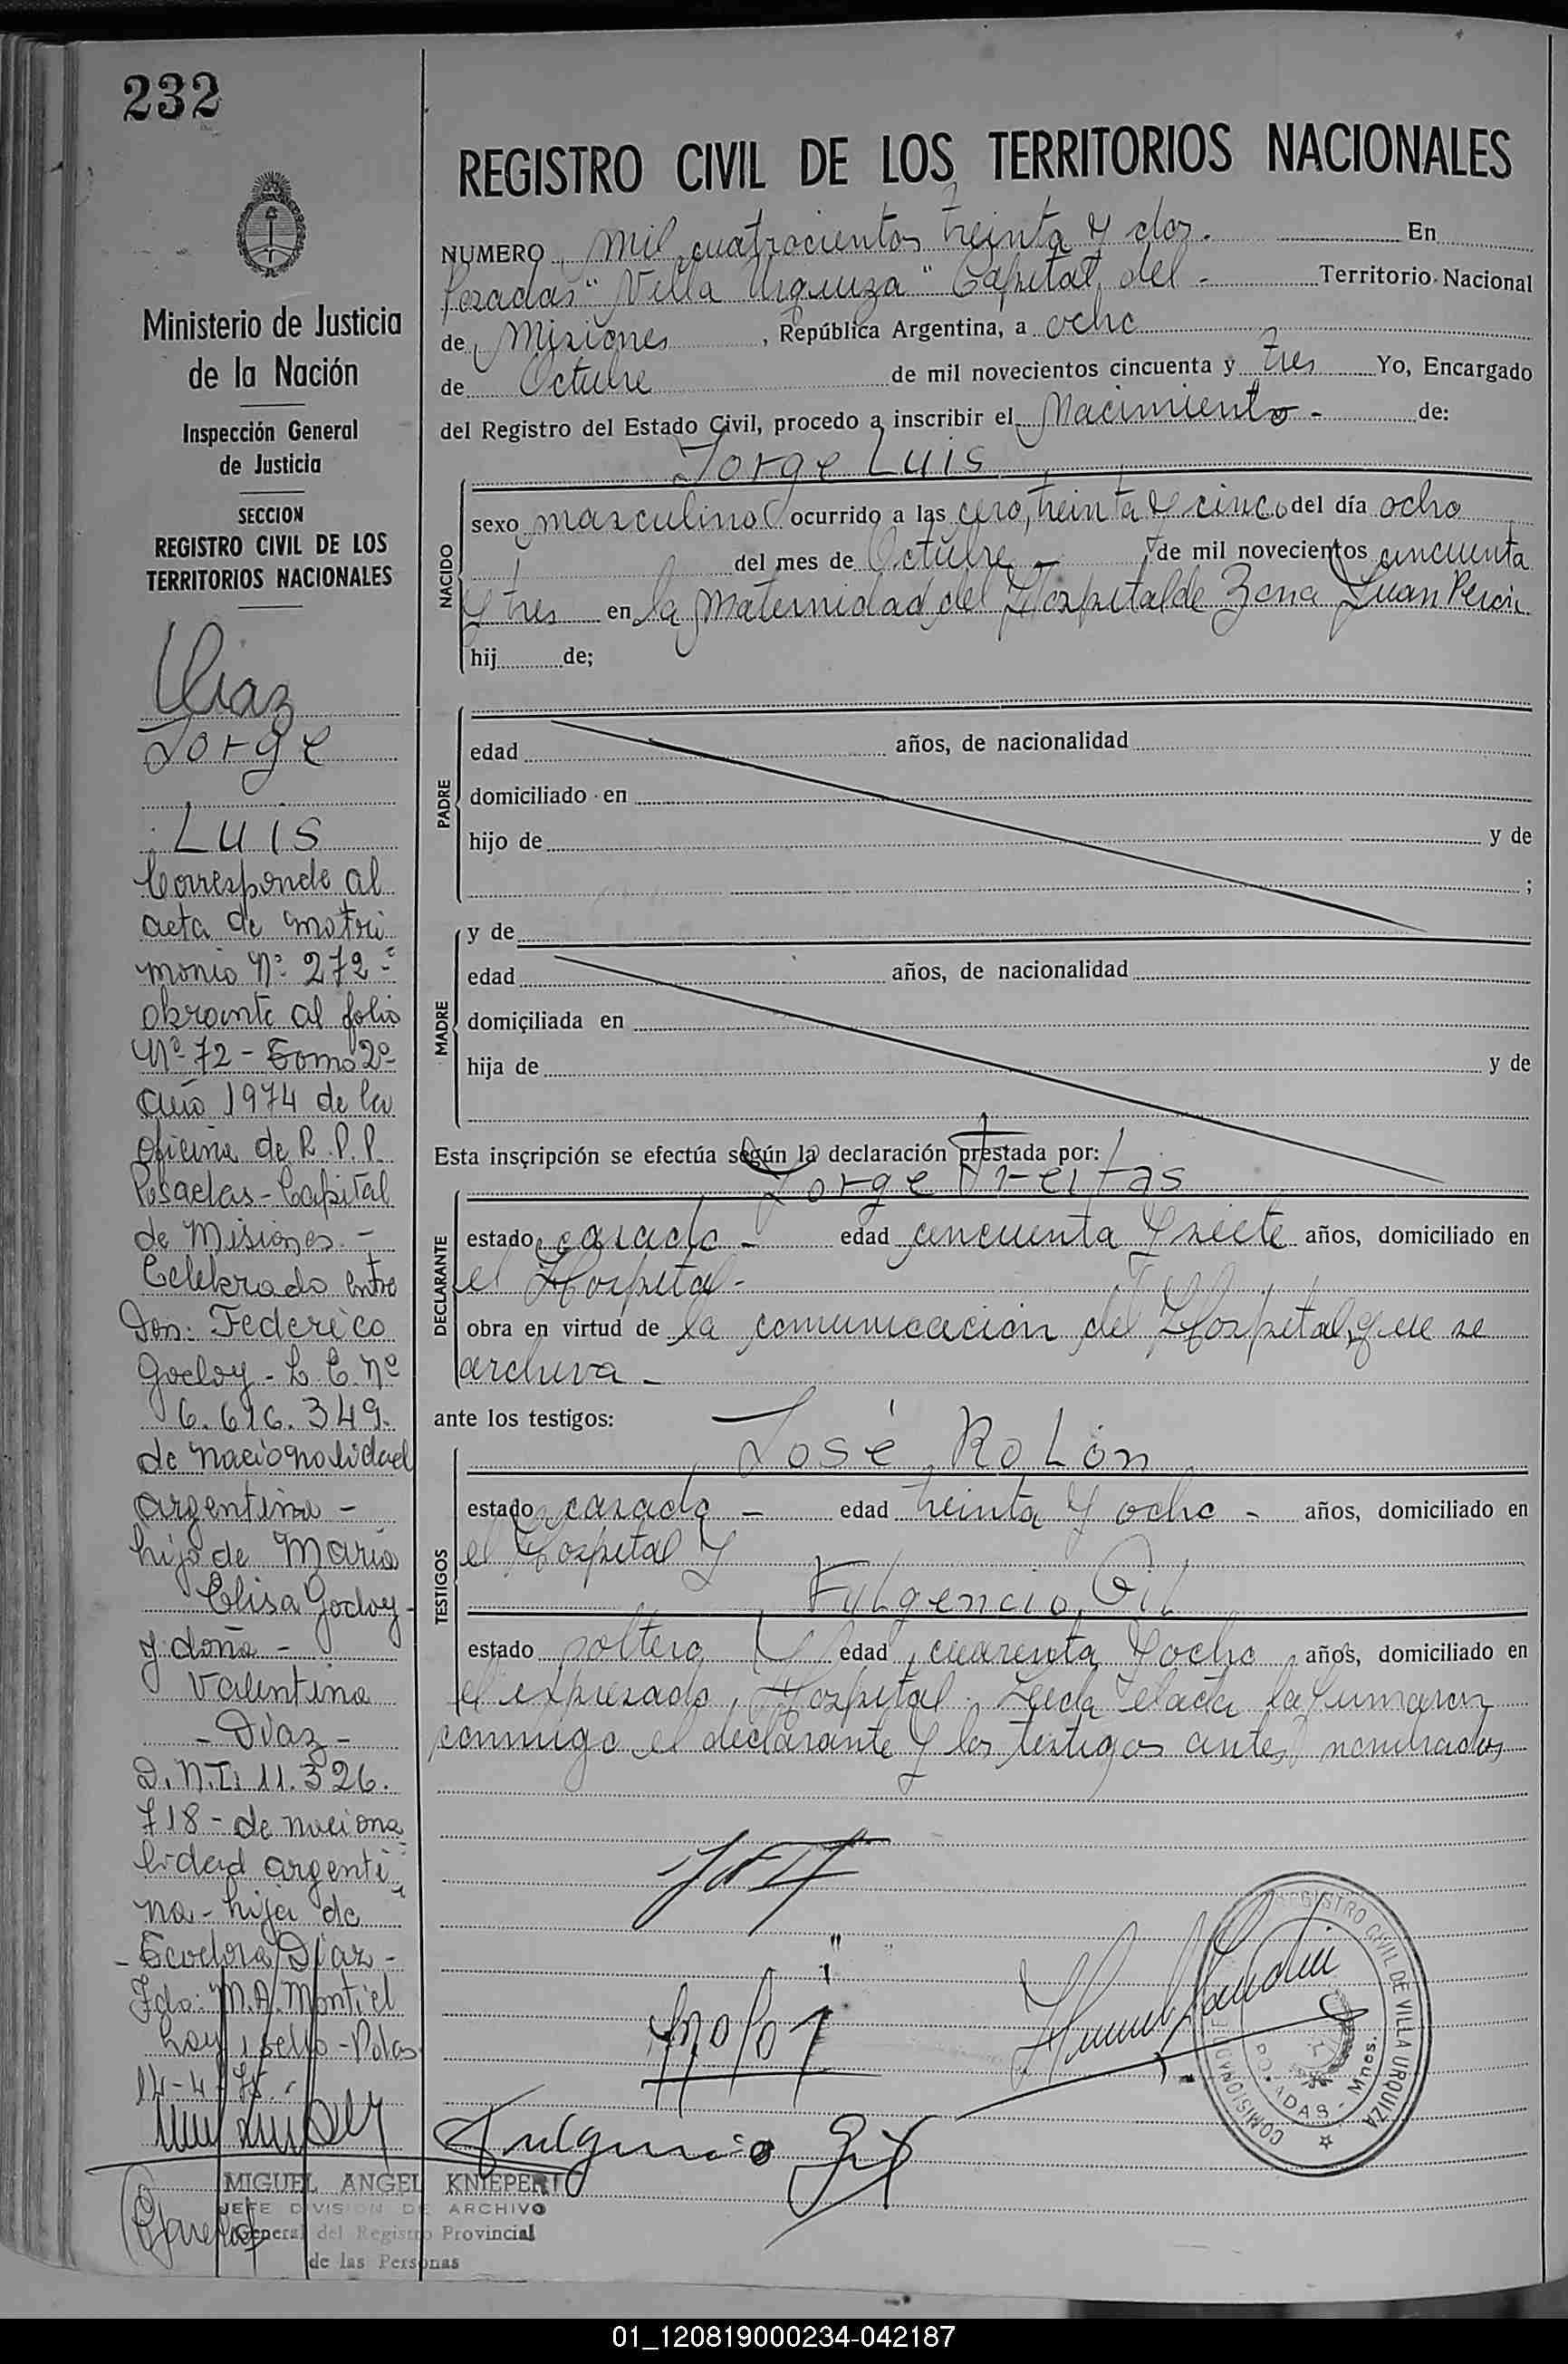 232
Ministerio de Justicia
de la Nación
Inspección General
de Justicia
SECCION
REGISTRO CIVIL DE LOS
TERRITORIOS NACIONALES
Diaz
Jorge
Luis
Corresponde al
acta de matri
monio Nº 272=
obrante al folio
Nº 72 - Tomo 2º
año 1974 de la
oficina de R.P.P.
Posadas - Capital
de Misiones. -
Celebrado entre
Don: Federico
Godoy - L.E. Nº
6.616.349.
de nacionalidad
argentina -
hijo de María
Elisa Godoy -
y doña -
Valentina
- Díaz -
D.N.I. 11.326.
718 - de naciona
lidad argenti
na - hija de
- Teodora Díaz -
Fdo: M.A. Montiel
hay 1 sello - Pdas
14-4-75.
MIGUEL ANGEL KNIEPERT
JEFE DIVISION DE ARCHIVO
General del Registro Provincial
de las Personas
REGISTRO CIVIL DE LOS TERRITORIOS NACIONALES
NUMERO mil cuatrocientos treinta y dos. En
Posadas "Villa Urquiza" Capital del - Territorio Nacional
de Misiones, República Argentina, a ocho
de Octubre de mil novecientos cincuenta y tres Yo, Encargado
del Registro del Estado Civil, procedo a inscribir el Nacimiento - de:
Jorge Luis
NACIDO
sexo masculino ocurrido a las cero, treinta y cinco del día ocho
del mes de Octubre - de mil novecientos cincuenta
y tres en la Maternidad del Hospital de Zona Juan Perón
hij de;
PADRE
edad años, de nacionalidad
domiciliado en
hijo de y de
;
MADRE
y de
edad años, de nacionalidad
domiciliada en
hija de y de
Esta inscripción se efectúa según la declaración prestada por:
Jorge Freitas
DECLARANTE
estado casado - edad cincuenta y siete años, domiciliado en
el Hospital -
obra en virtud de la comunicación del Hospital, que se
archiva -
ante los testigos:
José Rolón
TESTIGOS
estado casado - edad treinta y ocho - años, domiciliado en
el Hospital y
Fulgencio Gil
estado soltero edad cuarenta y ocho años, domiciliado en
el expresado Hospital. Leida el acta la firmaron
conmigo el declarante y los testigos antes nombrados
Fulgencio Gil
REGISTRO CIVIL DE VILLA URQUIZA
POSADAS - Mnes.
01_120819000234-042187